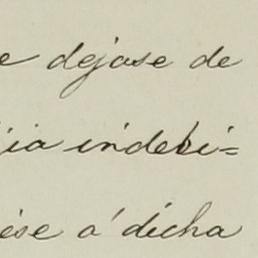 e dejase de
ia indebi=
ese á dicha